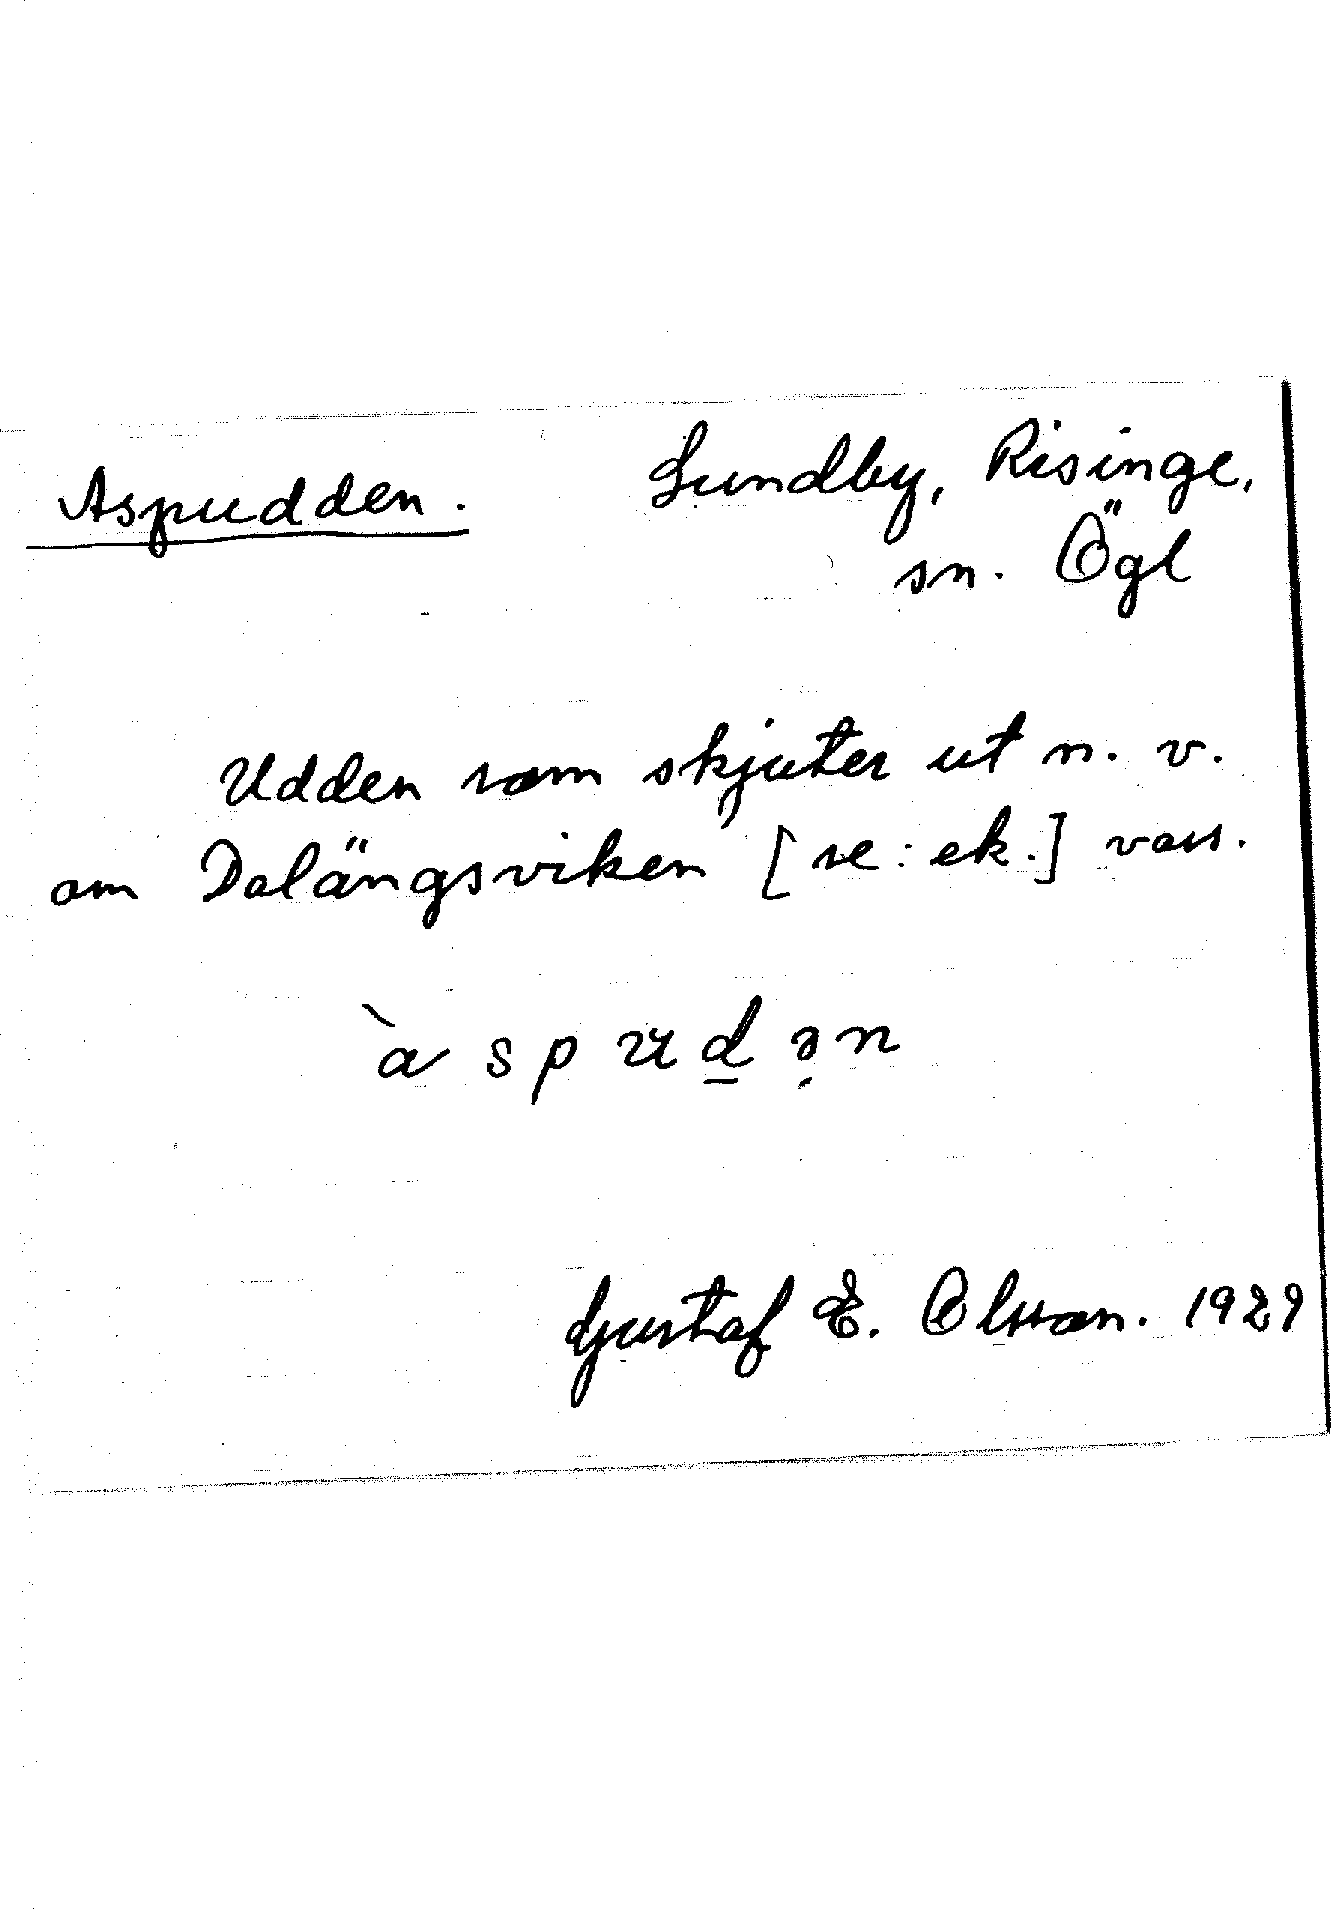 Aspudden. Lundby, Risinge,
sn. Ögl
Udden som skjuter ut n. v.
om Dalängsviken [se: ek.] vass.
àspuḏə̣n
Gustaf E. Olsson. 1929